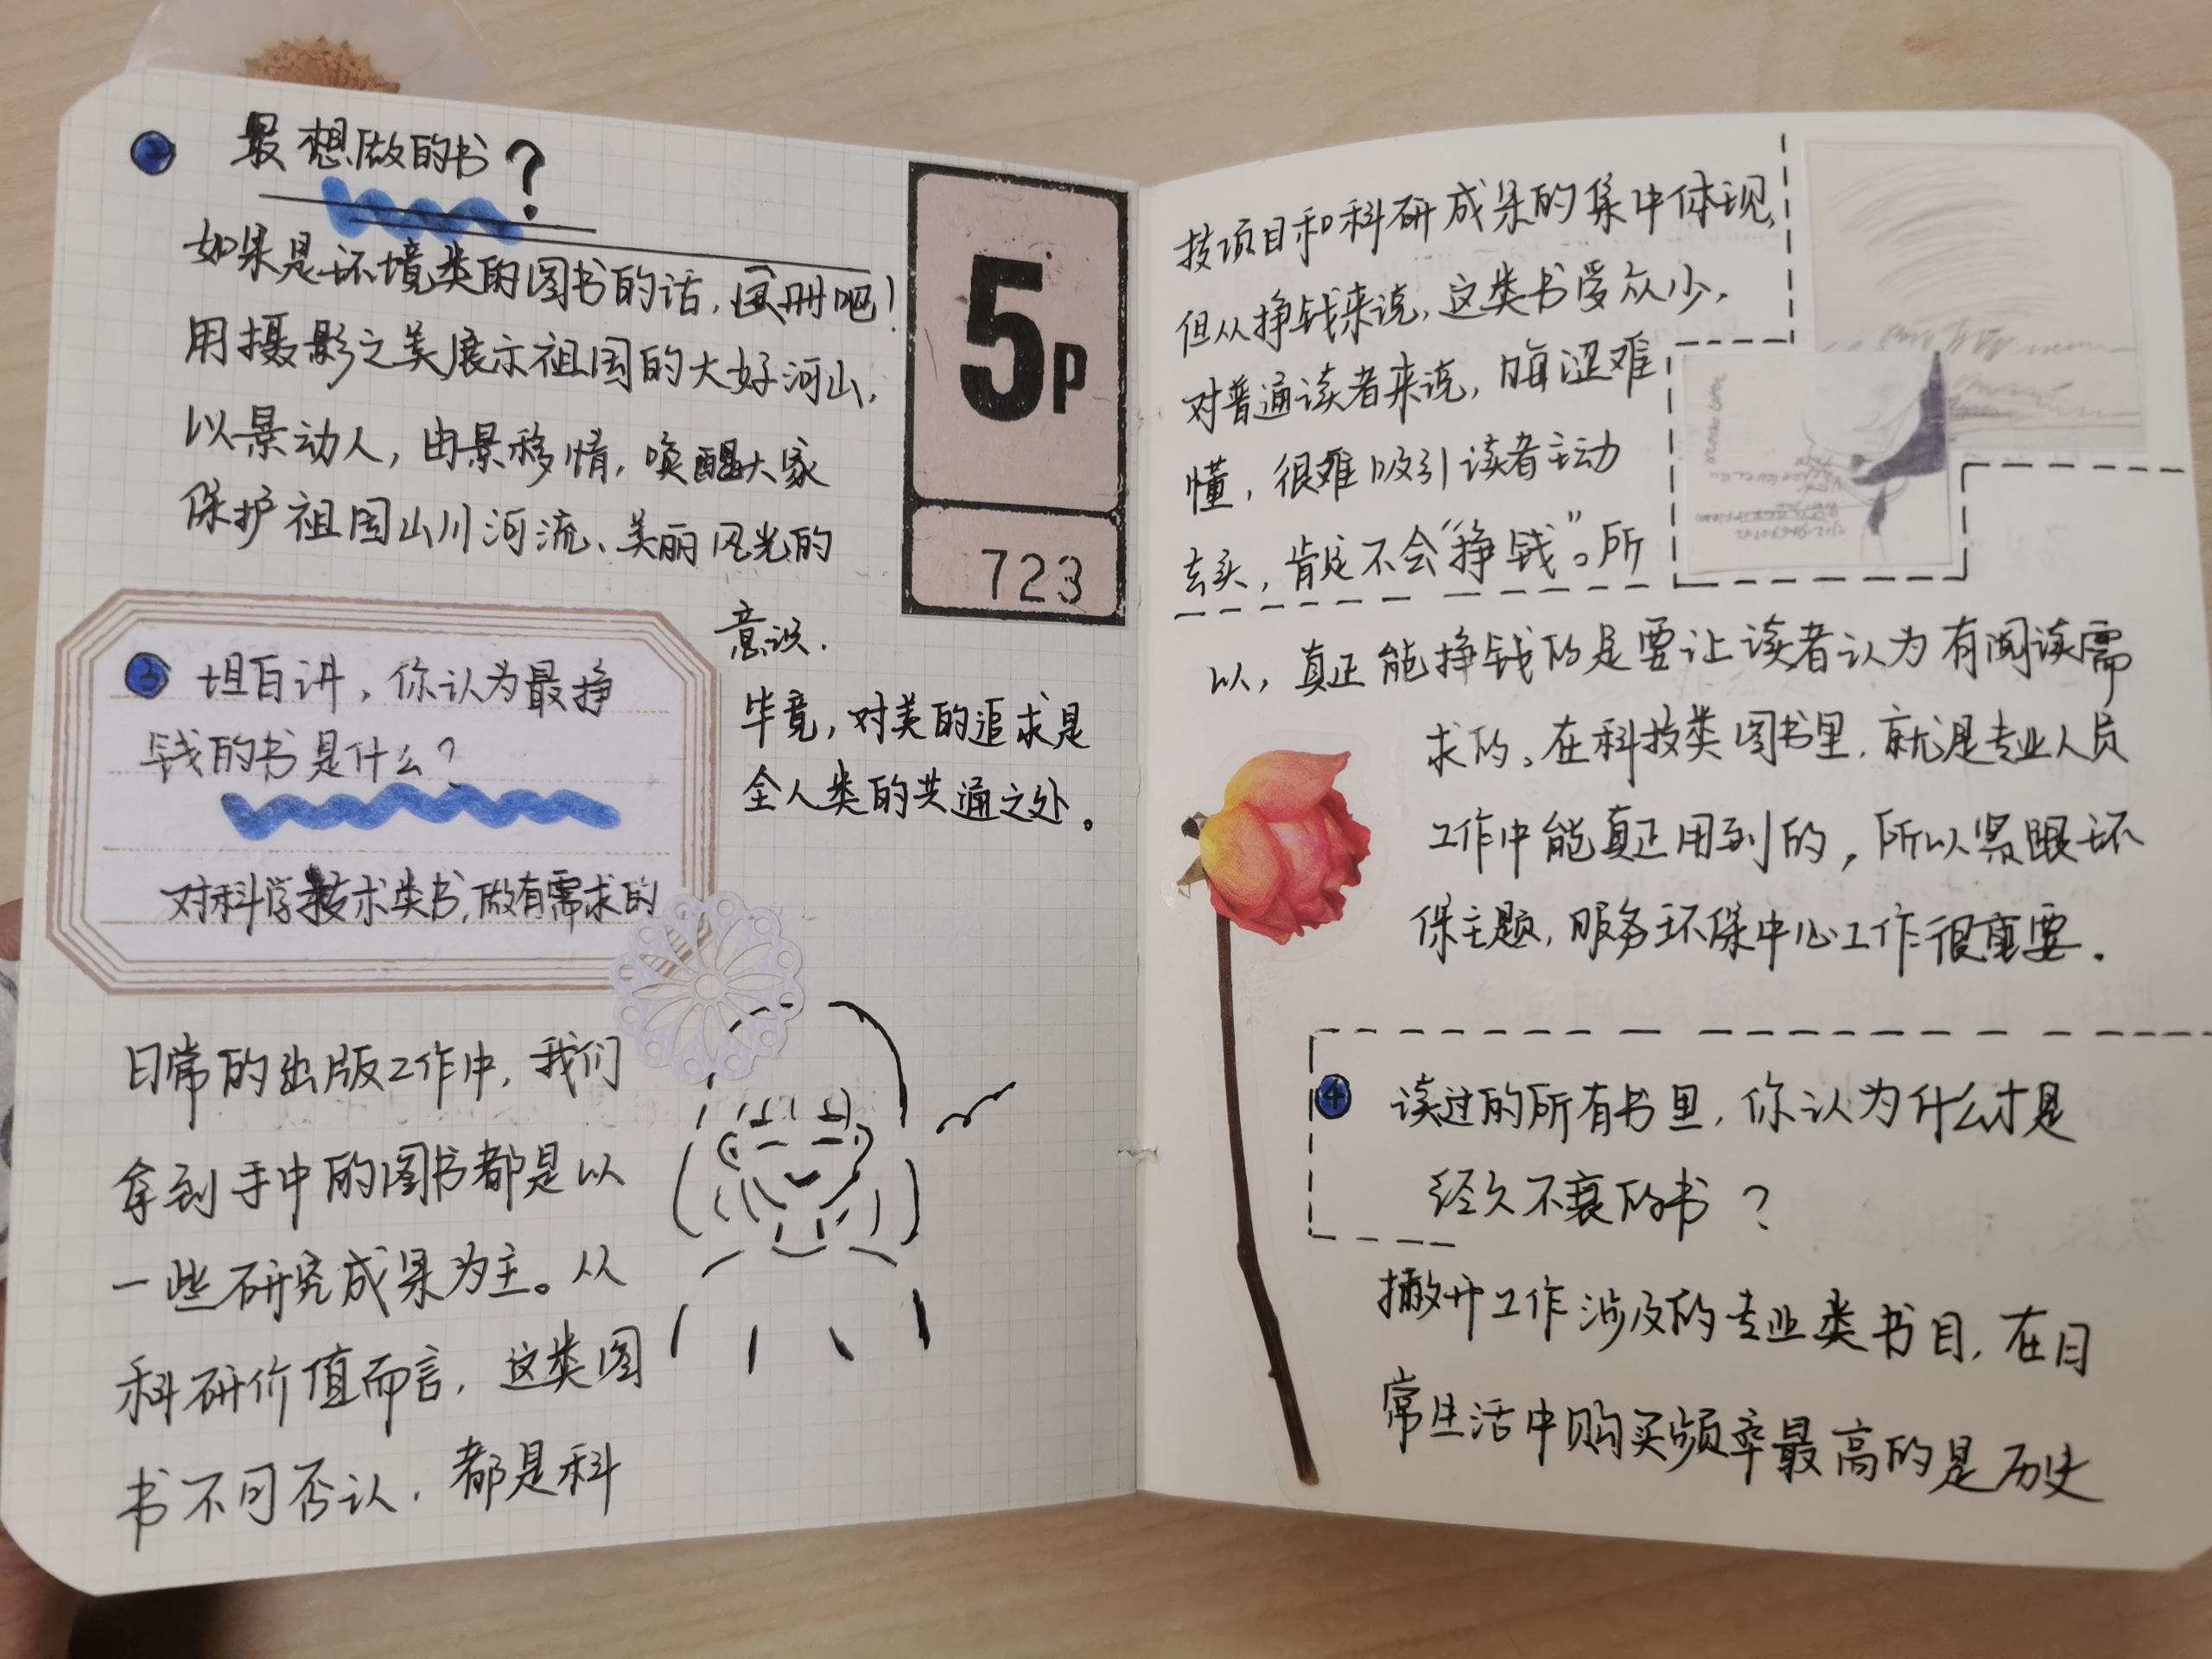 2 最想做的书?
如果是环境类的图书的话,画册吧!
用摄影之美展示祖国的大好河山,
以景动人,由景移情,唤醒大家
保护祖国山川河流、美丽风光的
意识.
毕竟,对美的追求是
全人类的共通之处。
5P
723
3 坦白讲,你认为最挣
钱的书是什么?
对科学技术类书,做有需求的
日常的出版工作中,我们
拿到手中的图书都是以
一些研究成果为主。从
科研价值而言,这类图
书不可否认,都是科
技项目和科研成果的集中体现,
但从挣钱来说,这类书受众少,
对普通读者来说,晦涩难
懂,很难吸引读者主动
去买,肯定不会“挣钱”。所
以,真正能挣钱的是要让读者认为有阅读需
求的。在科技类图书里,就是专业人员
工作中能真正用到的,所以紧跟环
保主题,服务环保中心工作很重要.
4 读过的所有书里,你认为什么才是
经久不衰的书?
撇开工作涉及的专业类书目,在日
常生活中购买频率最高的是历史